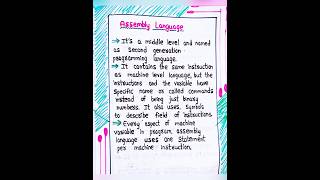 Assembly Language
→ It's a middle level and named
as second generation
programming language.
→ It contains the same instruction
as machine level language, but the
instructions and the variable have
specific name or called commands
instead of being just binary
numbers. It also uses symbols
to describe field of instructions.
→ Every aspect of machine
variable in program, assembly
language uses one statement
per machine instruction.